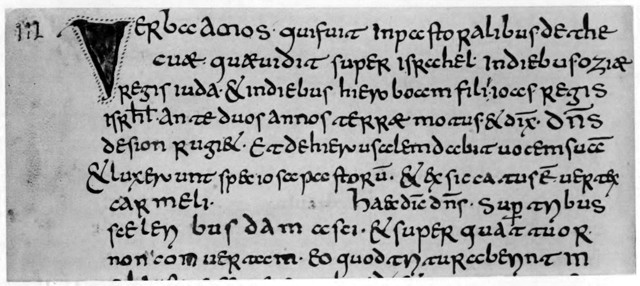 III VERba amos · qui fuit in pastoralibus de the
cuæ · quæ uidit super israhel in diebus oziæ
regis iuda · & in diebus hieroboam filii ioas regis
isrhl̄ · ante duos annos terræ motus & dix̄ · dn̄s
de sion rugi& · Et de hierusalem dabit uocem suā
& luxerunt speciosa pastorū · & exsiccatus ē uertex
carmeli · haec dic̄ dn̄s · Sup̄ tribus
sceleribus damasci · & super quattuor
non conuertam · eo quod trituraberint in